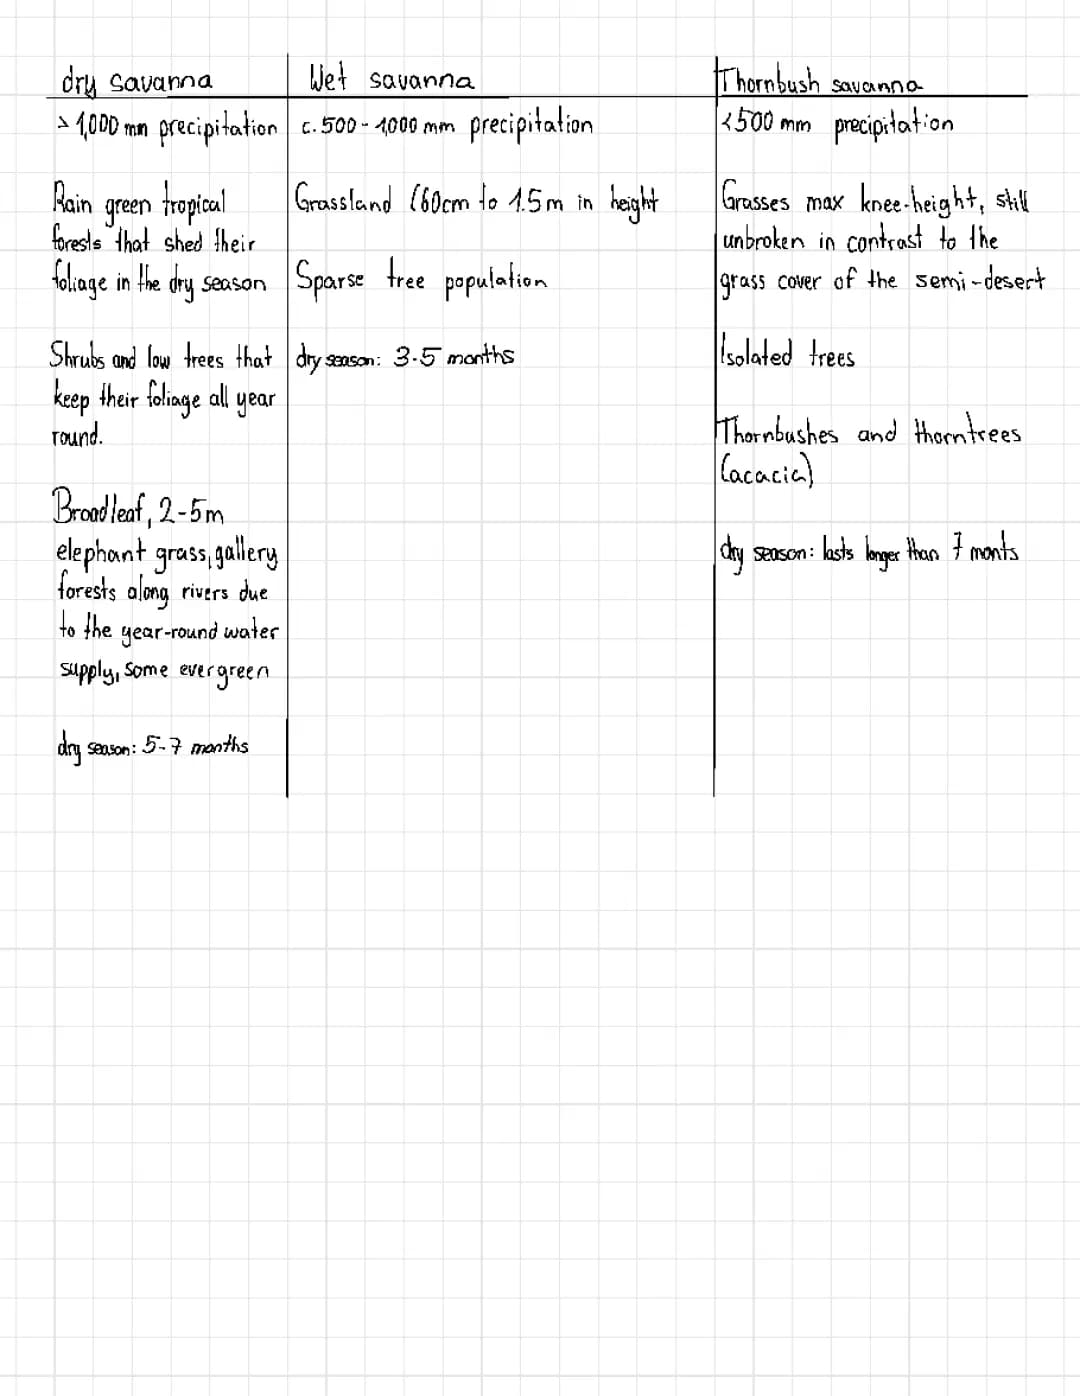 dry savanna
> 1,000 mm precipitation
Rain green tropical
forests that shed their
foliage in the dry season
Shrubs and low trees that
keep their foliage all year
round.
Broadleaf, 2-5m
elephant grass, gallery
forests along rivers due
to the year-round water
supply, some evergreen
dry season: 5-7 months
Wet savanna
c. 500 - 1,000 mm precipitation
Grassland (60cm to 1.5m in height
Sparse tree population
dry season: 3-5 months
Thornbush savanna
<500 mm precipitation
Grasses max knee-height, still
unbroken in contrast to the
grass cover of the semi-desert
Isolated trees
Thornbushes and thorntrees
(acacia)
dry season: lasts longer than 7 monts